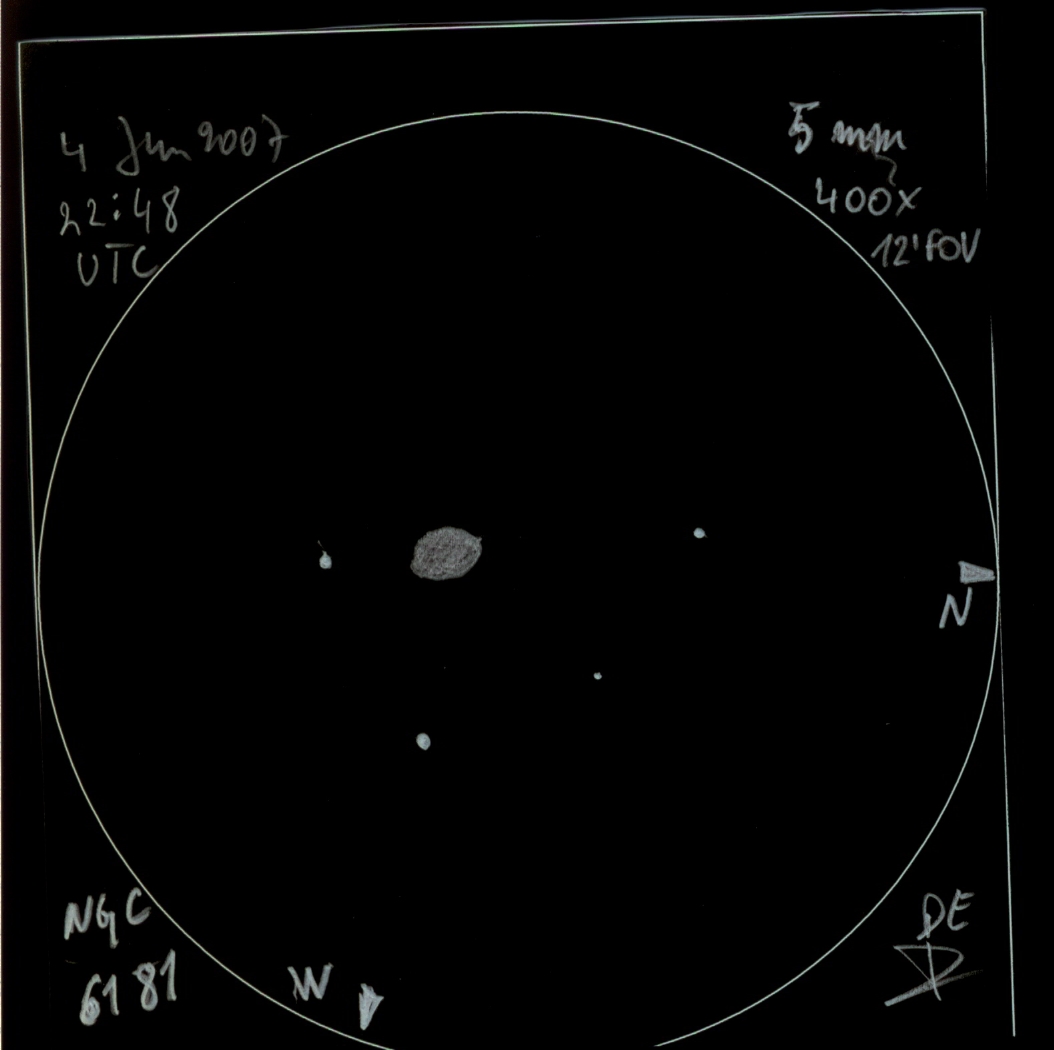 4 Jun 2007
22:48
UTC
5 mm
400x
12' FOV
N
NGC
6181
W
DE